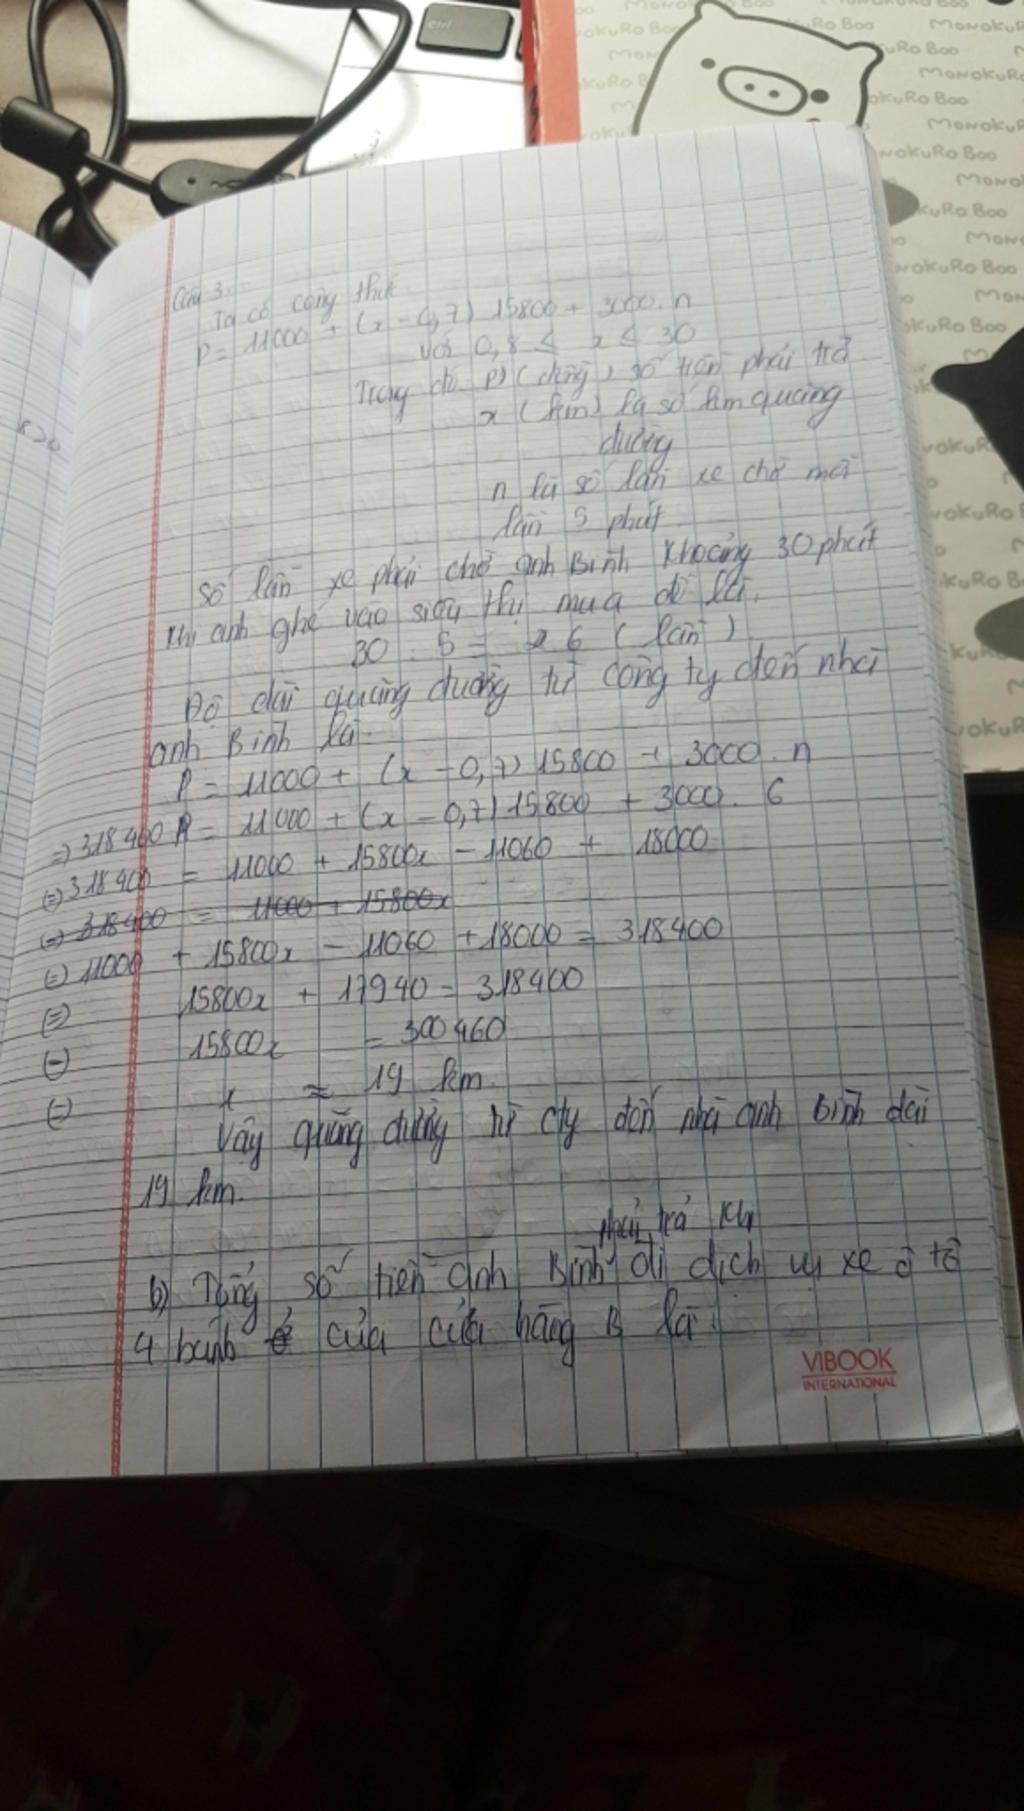 Câu 3.
Ta có công thức
P = 11000 + (x - 0,7) 15800 + 3000.n
với 0,8 ≤ x ≤ 30
Trong đó P (đồng) số tiền phải trả
x (km) là số km quãng
đường
n là số lần xe chờ mỗi
lần 5 phút
Số lần xe phải chờ anh Bình khoảng 30 phút
khi anh ghé vào siêu thị mua đồ là.
30 : 5 = 6 (lần)
Độ dài quãng đường từ công ty đến nhà
anh Bình là.
P = 11000 + (x - 0,7) 15800 + 3000. n
=> 318400 = 11000 + (x - 0,7) 15800 + 3000. 6
(=) 318400 = 11000 + 15800x - 11060 + 18000
(=) 318400 = 11000 + 15800x
(=) 11000 + 15800x - 11060 + 18000 = 318400
(=) 15800x + 17940 = 318400
(=) 15800x = 300460
(=) x ≈ 19 km.
Vậy quãng đường từ cty đến nhà anh bình dài
19 km.
phải trả khi
b) Tổng số tiền anh Bình đi dịch vụ xe ô tô
4 bánh của cửa hãng B là:
VIBOOK
INTERNATIONAL
ctrl
MONOKURO BOO